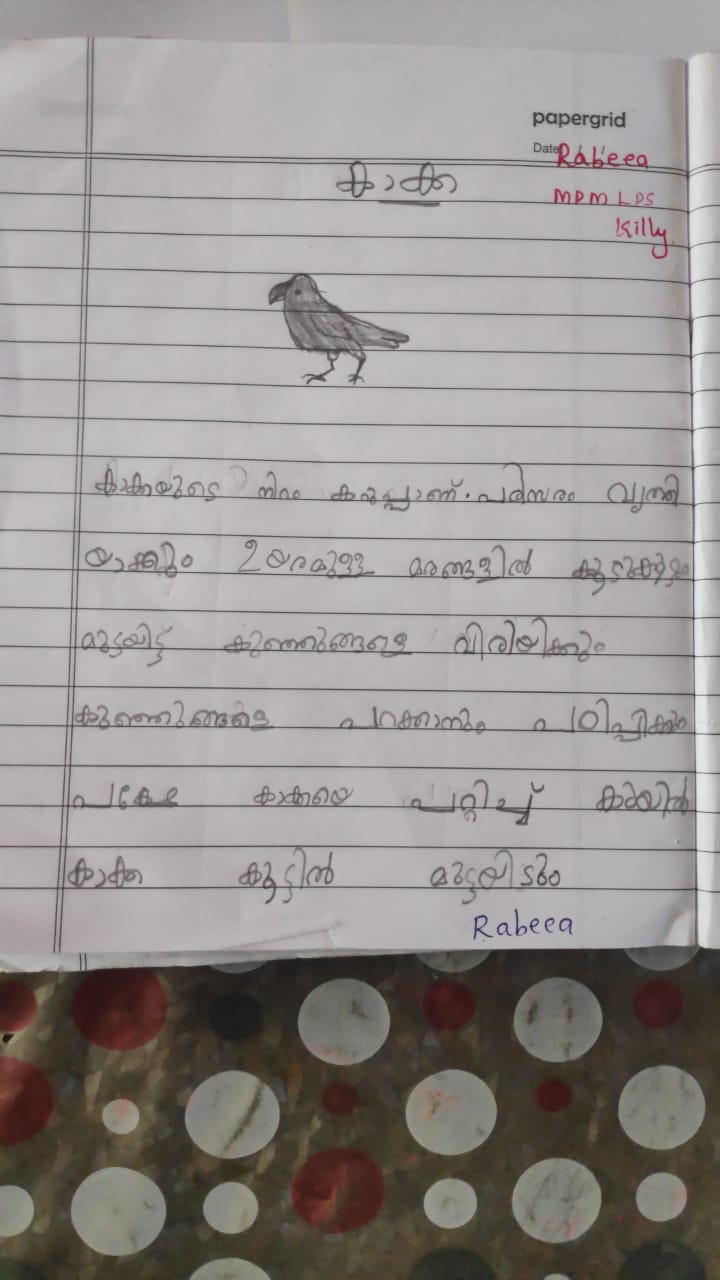 papergrid
Date Rabeea
MPM LPS
Killy
കാക്ക
കാക്കയുടെ നിറം കറുപ്പാണ്. പരിസരം വൃത്തി
യാക്കും ഉയരമുള്ള മരങ്ങളിൽ കൂടുകൂട്ടും
മുട്ടയിട്ട് കുഞ്ഞുങ്ങളെ വിരിയിക്കും
കുഞ്ഞുങ്ങളെ പറക്കാനും പഠിപ്പിക്കും
പക്ഷേ കാക്കയെ പറ്റിച്ച് കുയിൽ
കാക്ക കൂട്ടിൽ മുട്ടയിടും
Rabeea